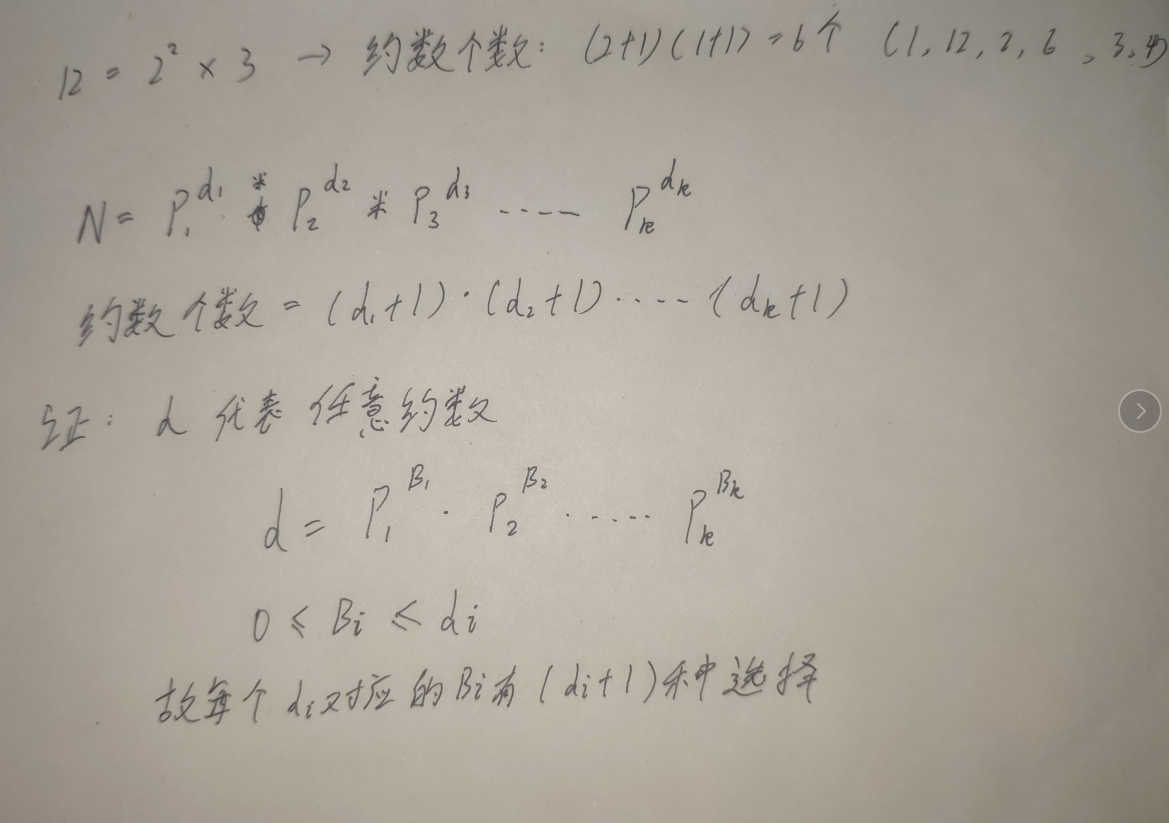 12 = 2² × 3 → 约数个数: (2+1)(1+1) = 6个 (1, 12, 2, 6, 3, 4)
N = P₁^d₁ * P₂^d₂ * P₃^d₃ ---- Pₖ^dₖ
约数个数 = (d₁+1)·(d₂+1)····· (dₖ+1)
证: d 代表 任意约数
d = P₁^B₁ · P₂^B₂ ······ Pₖ^Bₖ
0 ≤ Bi ≤ di
故每个di对应的Bi有(di+1)种选择